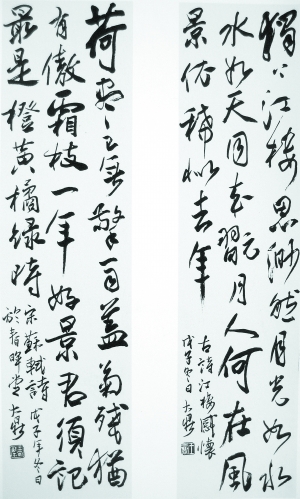 獨上江樓思渺然月光如水
水如天同來翫月人何在風
景依稀似去年
古詩江樓感懷
戊子冬日大鼎
荷盡已無擎雨蓋菊殘猶
有傲霜枝一年好景君須記
最是橙黃橘綠時
宋蘇軾詩戊子年冬日
於春暉堂大鼎